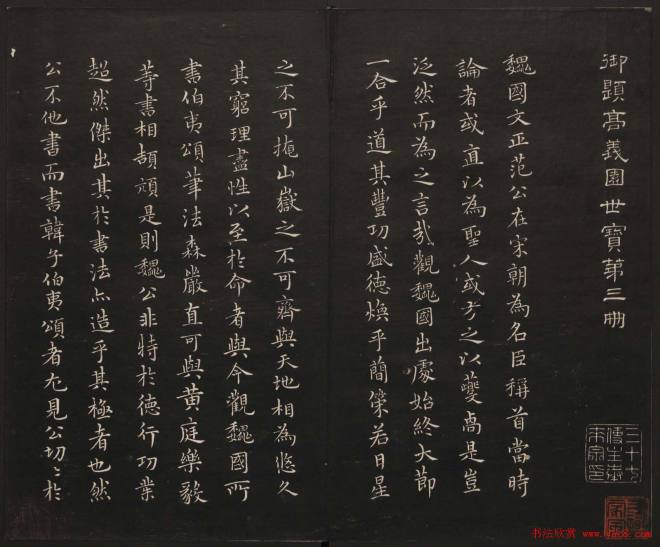 御題高義園世寶第三冊
魏國文正范公在宋朝為名臣稱首當時
論者或直以為聖人或方之以夔卨是豈
泛然而為之言哉觀魏國出處始終大節
一合乎道其豐功盛德煥乎簡策若日星
之不可掩山嶽之不可齊與天地相為悠久
其窮理盡性以至於命者與今觀魏國所
書伯夷頌筆法森嚴直可與黃庭樂毅
等書相頡頏是則魏公非特於德行功業
超然傑出其於書法亦造乎其極者也然
公不他書而書韓子伯夷頌者尤見公切〻於
書法欣赏